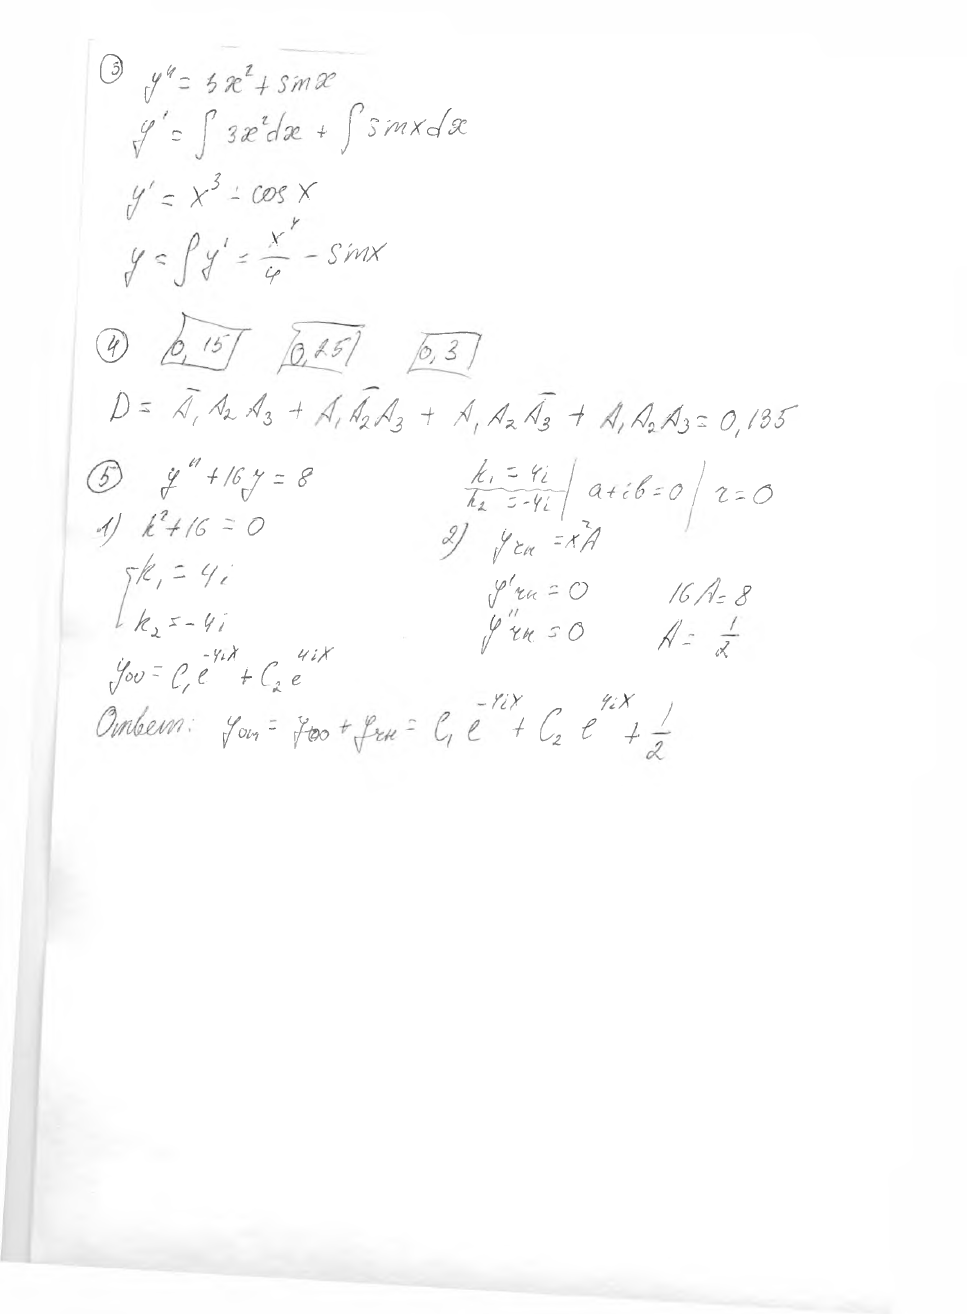 ③ y'' = 3x² + sinx
y' = ∫ 3x²dx + ∫ sinxdx
y' = x³ - cos x
y = ∫ y' = x⁴/4 - sinx
④ 0,15 0,25 0,3
D = Ā₁ A₂ A₃ + A₁ Ā₂ A₃ + A₁ A₂ Ā₃ + A₁ A₂ A₃ = 0,135
⑤ y'' + 16y = 8
k₁ = 4i
k₂ = -4i | a+ib=0 | r=0
1) k²+16 = 0
2) yчн = x²A
k₁ = 4i
y'чн = 0 16A = 8
k₂ = -4i
y''чн = 0 A = 1/2
yоо = C₁e^-4ix + C₂e^4ix
Ответ: yон = yоо + yчн = C₁ e^-4ix + C₂ e^4ix + 1/2